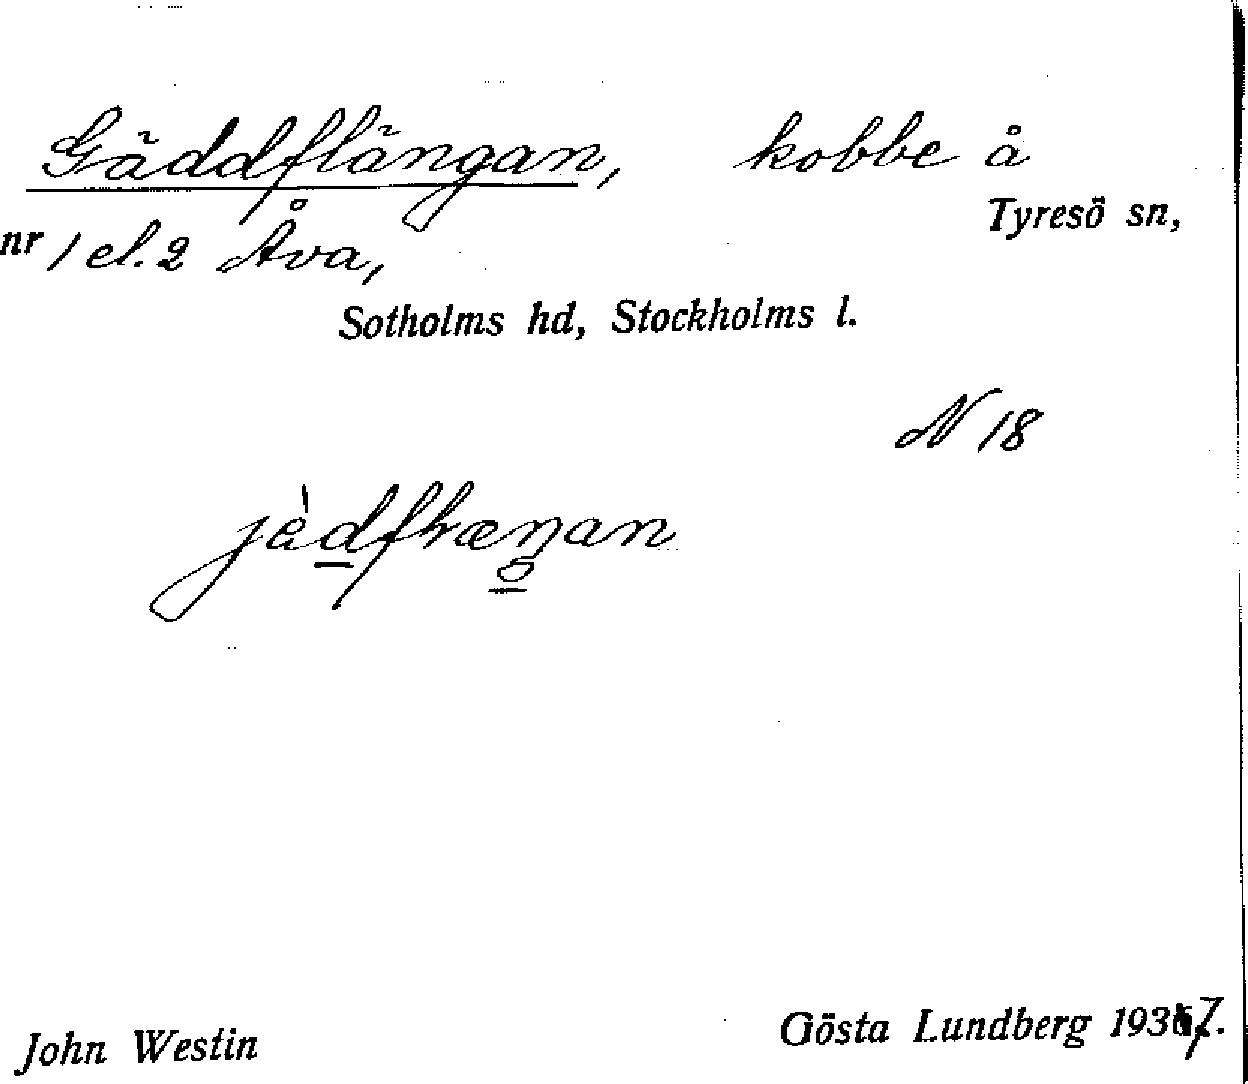 Gäddflängan, kobbe å
Tyresö sn,
nr 1 el. 2 Åva,
Sotholms hd, Stockholms l.
N 18
John Westin
Gösta Lundberg 1937.